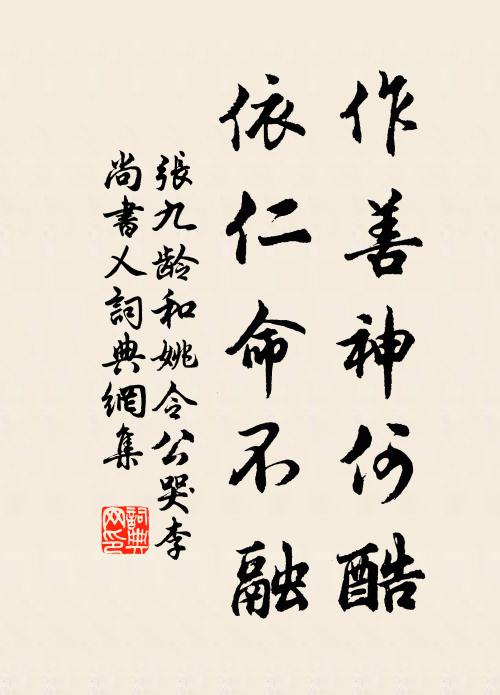 作善神何酷
依仁命不融
張九龄和姚令公哭李
尚書乂詞典網集
詞典
网印